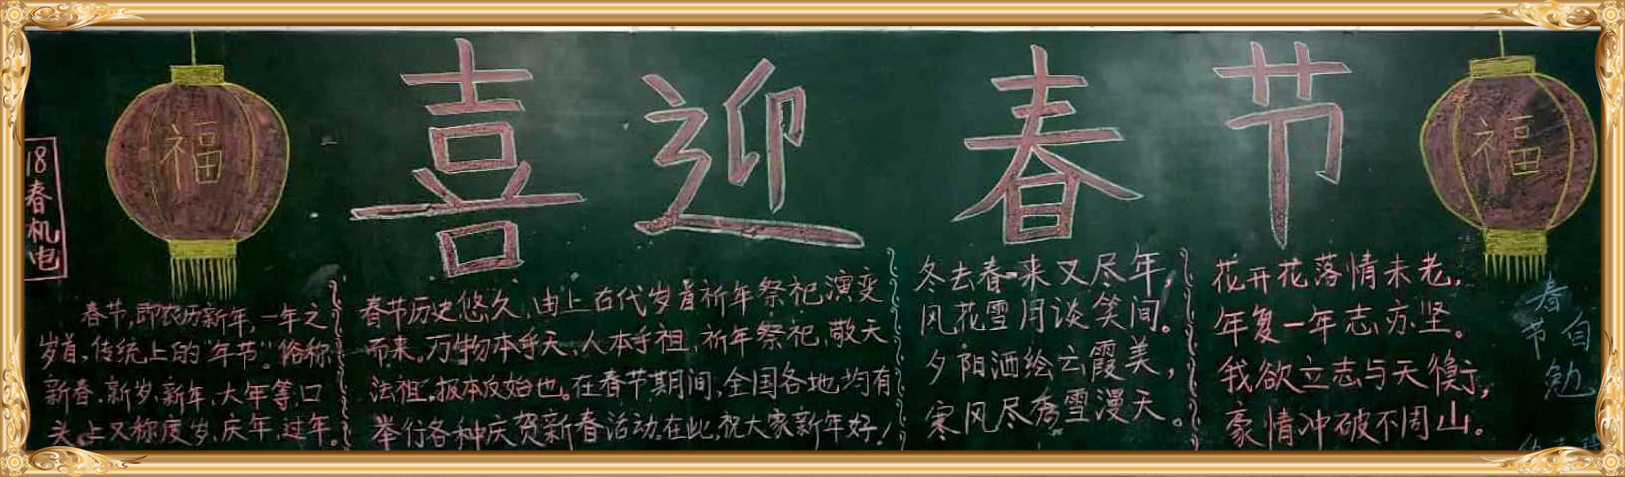 喜迎春节
福
福
18春机电
春节,即农历新年,一年之
岁首,传统上的“年节”。俗称
新春、新岁、新年、大年等,口
头上又称度岁、庆年、过年。
春节历史悠久,由上古代岁首祈年祭祀演变
而来。万物本乎天、人本乎祖,祈年祭祀、敬天
法祖,报本反始也。在春节期间,全国各地均有
举行各种庆贺新春活动,在此,祝大家新年好!
冬去春来又尽年,
风花雪月谈笑间。
夕阳洒绘云霞美,
寒风尽秀雪漫天。
花开花落情未老,
年复一年志亦坚。
我欲立志与天衡,
豪情冲破不周山。
春节
自勉